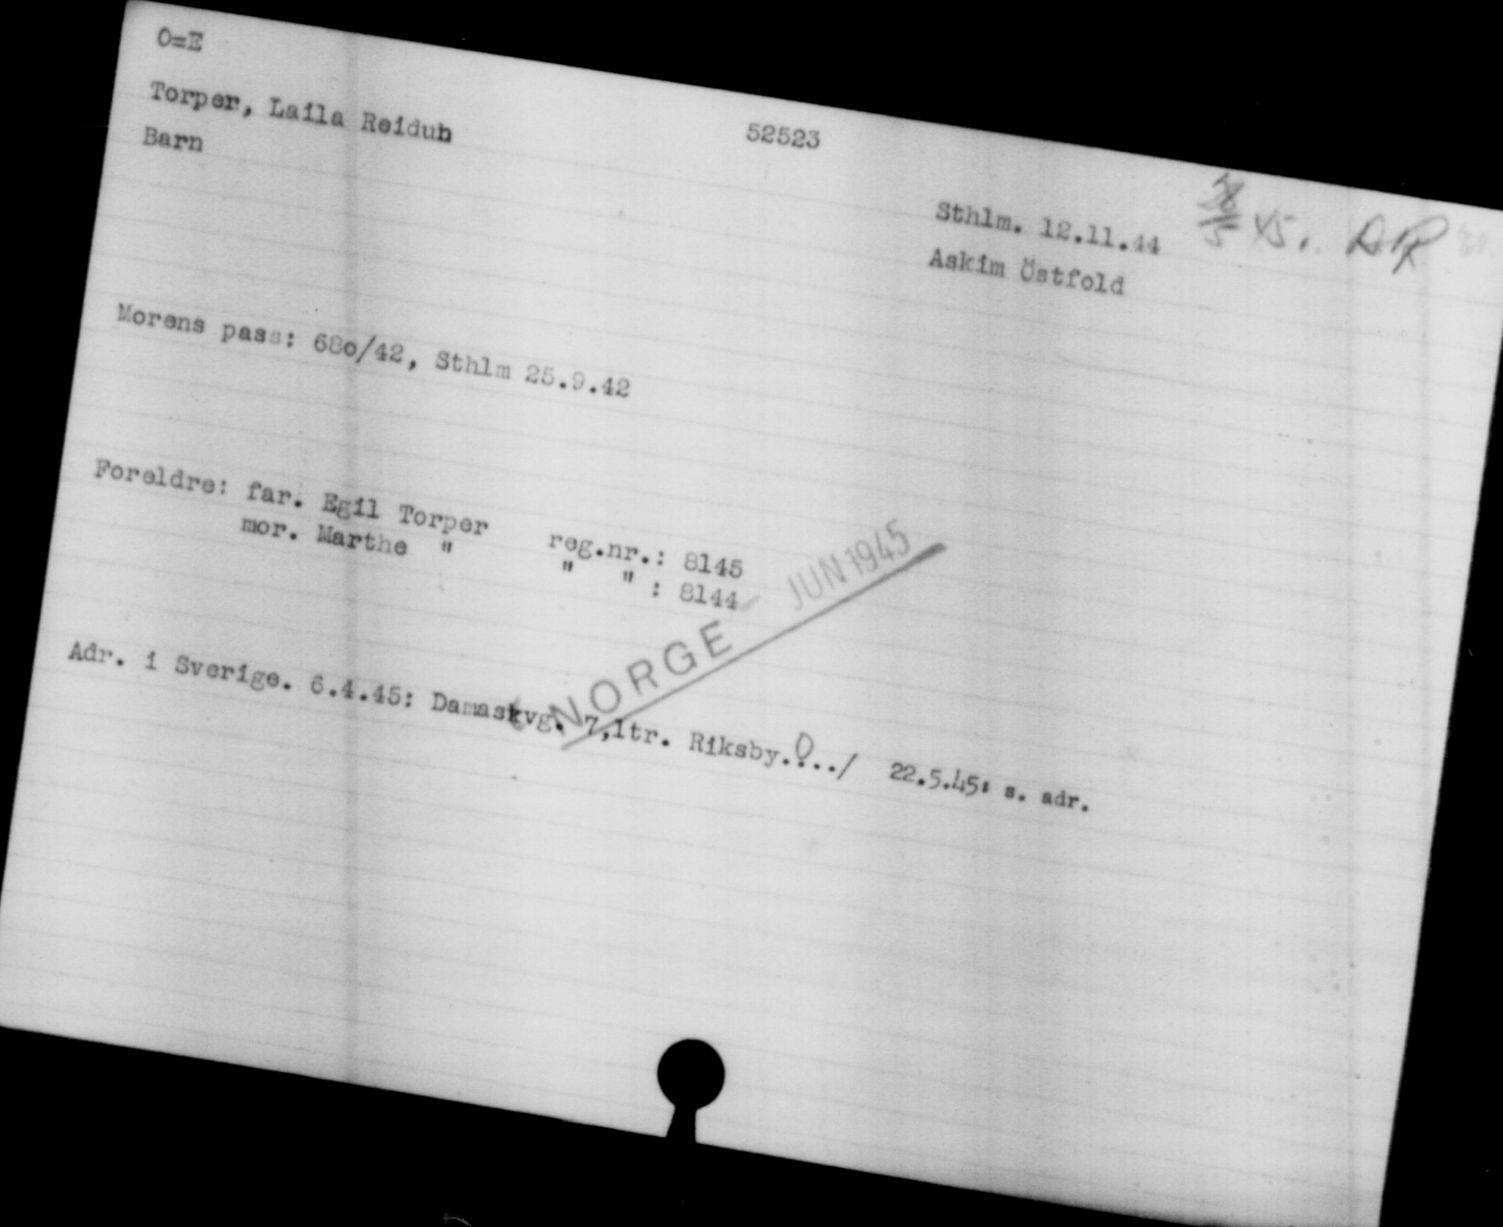 O=E
Torper, Laila Reidub 52523
Barn
Sthlm. 12.11.44 28/5 45. DR
Askim Östfold
Morens pass: 680/42, Sthlm 25.9.42
Foreldre: far. Egil Torper reg.nr.: 8145
mor. Marthe " " " : 8144
NORGE JUN 1945
Adr. i Sverige. 6.4.45: Damaskvg. 7,1tr. Riksby..../ 22.5.45: s. adr.